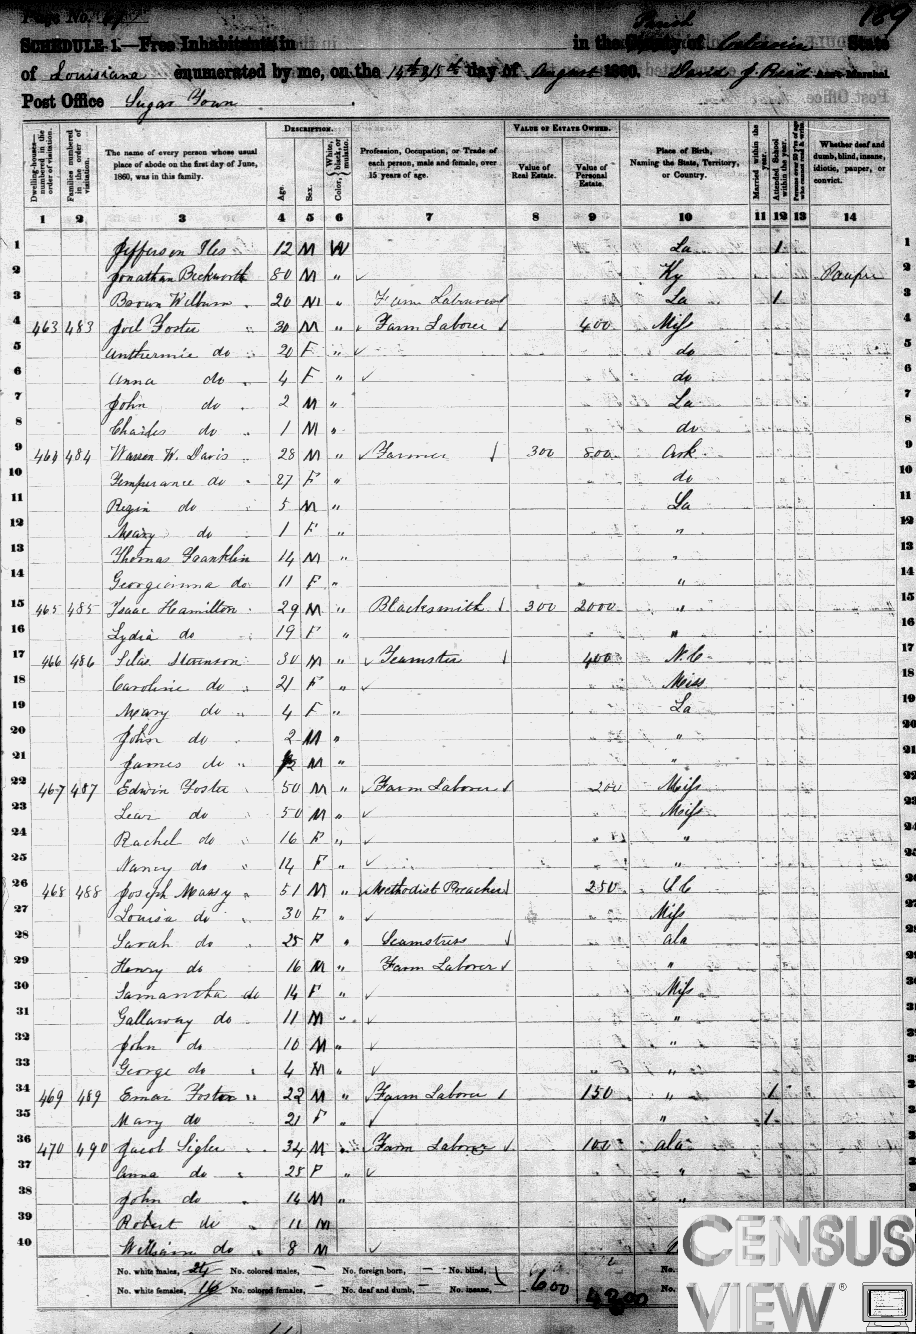 Page No. 189
SCHEDULE 1.—Free Inhabitants in in the Parish County of Calcasieu State
of Louisiana enumerated by me, on the 14th & 15th day of August 1860. David J. Reid Ass't Marshal.
Post Office Sugar Town
Dwelling-houses—numbered in the order of visitation. Families numbered in the order of visitation. The name of every person whose usual place of abode on the first day of June, 1860, was in this family. DESCRIPTION. Age. Sex. Color, White, black, or mulatto. Profession, Occupation, or Trade of each person, male and female, over 15 years of age. VALUE OF ESTATE OWNED. Value of Real Estate. Value of Personal Estate. Place of Birth, Naming the State, Territory, or Country. Married within the year. Attended School within the year. Persons over 20 y'rs of age who cannot read & write. Whether deaf and dumb, blind, insane, idiotic, pauper, or convict.
1 2 3 4 5 6 7 8 9 10 11 12 13 14
1 Jefferson Iles 12 M W La 1 1
2 Jonathan Beckworth 80 M " Ky Pauper 2
3 Brown Welburn 20 M " Farm Labourer La 1 3
4 463 483 Joel Foster 30 M " Farm Laborer 400 Miss 4
5 do 20 F " do 5
6 Anna do 4 F " do 6
7 John do 2 M " La 7
8 Charles do 1 M " do 8
9 464 484 Warren W. Davis 28 M " Farmer 300 800 Ark 9
10 Temperance do 27 F " do 10
11 Regin do 5 M " La 11
12 Mary do 1 F " " 12
13 Thomas Franklin 14 M " " 13
14 Georgianna do 11 F " " 14
15 465 485 Isaac Hamilton 29 M " Blacksmith 300 2000 " 15
16 Lydia do 19 F " " 16
17 466 486 Silas Stevenson 30 M " Teamster 400 N.C 17
18 Caroline do 21 F " Miss 18
19 Mary do 4 F " La 19
20 John do 2 M " " 20
21 James do M " " 21
22 467 487 Edwin Foster 50 M " Farm Laborer 200 Miss 22
23 Lear do 50 M " Miss 23
24 Rachel do 16 F " " 24
25 Nancy do 14 F " " 25
26 468 488 Joseph Massy 51 M " Methodist Preacher 250 S C 26
27 Louisa do 30 F " Miss 27
28 Sarah do 25 F " Seamstress Ala 28
29 Henry do 16 M " Farm Laborer " 29
30 Samantha do 14 F " Miss 30
31 Gallaway do 11 M " " 31
32 John do 10 M " " 32
33 George do 4 M " "
34 469 489 Foster 22 M " Farm Laborer 150 " 1
35 Mary do 21 F " " 1
36 470 490 Jacob Sigler 34 M " Farm Laborer 100 Ala
37 Anna do 28 F " "
38 John do 14 M " "
39 Robert do 11 M
40 William do 8 M
No. white males, 24 No. colored males, — No. foreign born, — No. blind,
No. white females, 16 No. colored females, — No. deaf and dumb, — No. insane, 600 4800 No.
CENSUS
VIEW®